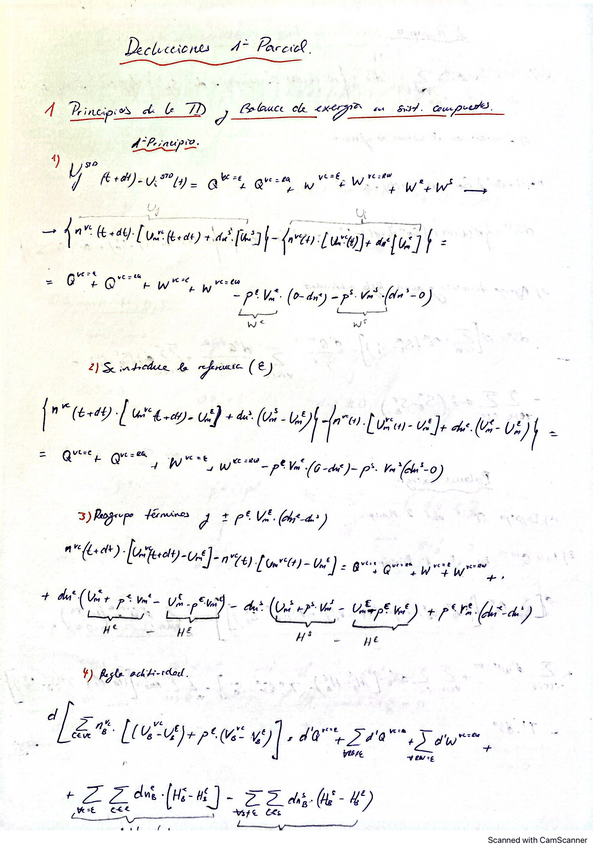 Deducciones 1º Parcial.
1 Principios de la TD y Balance de exergía en sist. compuestos.
1º Principio.
1) U^STD (t+dt) - U_i^STD (t) = Q^VC=E + Q^VC=RA + W^VC=E + W^VC=RW + W^e + W^s →
→ { n^VC (t+dt) · [U_m^VC (t+dt) + dn^s · [U_m^s] } - { n^VC (t) · [U_m^VC (t)] + dn^e [U_m^e] } =
= Q^VC=E + Q^VC=RA + W^VC=E + W^VC=RW - p^e · V_m^e · (0 - dn^e) - p^s · V_m^s · (dn^s - 0)
W^e W^s
2) Se introduce la referencia (E)
{ n^VC (t+dt) · [U_m^VC (t+dt) - U_m^E] + dn^s · (U_m^s - U_m^E) } - { n^VC (t) · [U_m^VC (t) - U_m^E] + dn^e · (U_m^e - U_m^E) } =
= Q^VC=E + Q^VC=RA + W^VC=E + W^VC=RW - p^e · V_m^e · (0 - dn^e) - p^s · V_m^s (dn^s - 0)
3) Reagrupo términos y ± p^E · V_m^E · (dn^e - dn^s)
n^VC (t+dt) · [U_m^VC (t+dt) - U_m^E] - n^VC (t) · [U_m^VC (t) - U_m^E] = Q^VC=E + Q^VC=RA + W^VC=E + W^VC=RW +
+ dn^e · (U_m^e + p^e · V_m^e - U_m^E - p^E · V_m^E) - dn^s · (U_m^s + p^s · V_m^s - U_m^E + p^E V_m^E) + p^E V_m^E · (dn^e - dn^s)
H^e - H^E H^s - H^E
4) Regla aditividad.
d [ Σ_C∈VC n_B^VC · [(U_B^VC - U_B^E) + p^E · (V_B^VC - V_B^E)] = d'Q^VC=E + Σ d'Q^VC=RA + Σ d'W^VC=RW +
+ Σ Σ dn_B^e · [H_B^e - H_B^E] - Σ Σ dn_B^s · (H_B^s - H_B^E)
Scanned with CamScanner